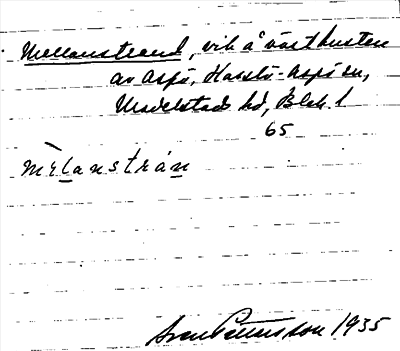 Mellanstrand, vik å västkusten
av Aspö, Hasslö-Aspö sn,
Medelstads hd, Blek. l
65
mɛ̀lanstrán
Sven Benson 1935